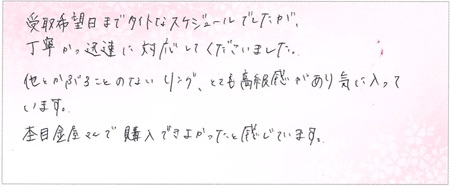 受取希望日までタイトなスケジュールでしたが、
丁寧かつ迅速に対応してくださいました。
他とかぶることのないリング、とても高級感があり気に入って
います。
杢目金屋さんで購入できよかったと感じています。